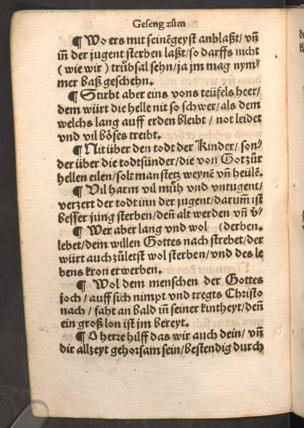 Geseng zům
¶ Wo ers mit seinē geyst anblaßt/ vñ
iñ der jugent sterben laßt/ so darffs nicht
(wie wir) trübsal sehn/ ja jm mag nym/
mer baß geschehn.
¶ Stirbt aber eins vons teüfels heer/
dem würt die helle nit so schwer/ als dem
welchs lang auff erden bleibt/ not leidet
und vil böses treibt.
¶ Nit über den todt der Kinder/ son/
der über die todtsünder/ die von Got zůr
hellen eilen/ solt man stetz weynē vñ heülē.
¶ Vil harm vil müh und vntugent/
verzert der todt inn der jugent/ darumb ist
besser jung sterben/ deñ alt werden vñ v̄/
¶ Wer aber lang vnd wol (derben.
lebet/ dem willen Gottes nach strebet/ der
würt auch zůletst wol sterben/ vnd des le
bens kron erwerben.
¶ Wol dem menschen der Gottes
joch/ auff sich nimpt vnd tregts Christo
nach/ faht an bald iñ seiner kintheyt/ deñ
ein groß lon ist jm bereyt.
¶ O herre hilff das wir auch dein/ vñ
dir allzeyt gehorsam sein/ bestendig durch